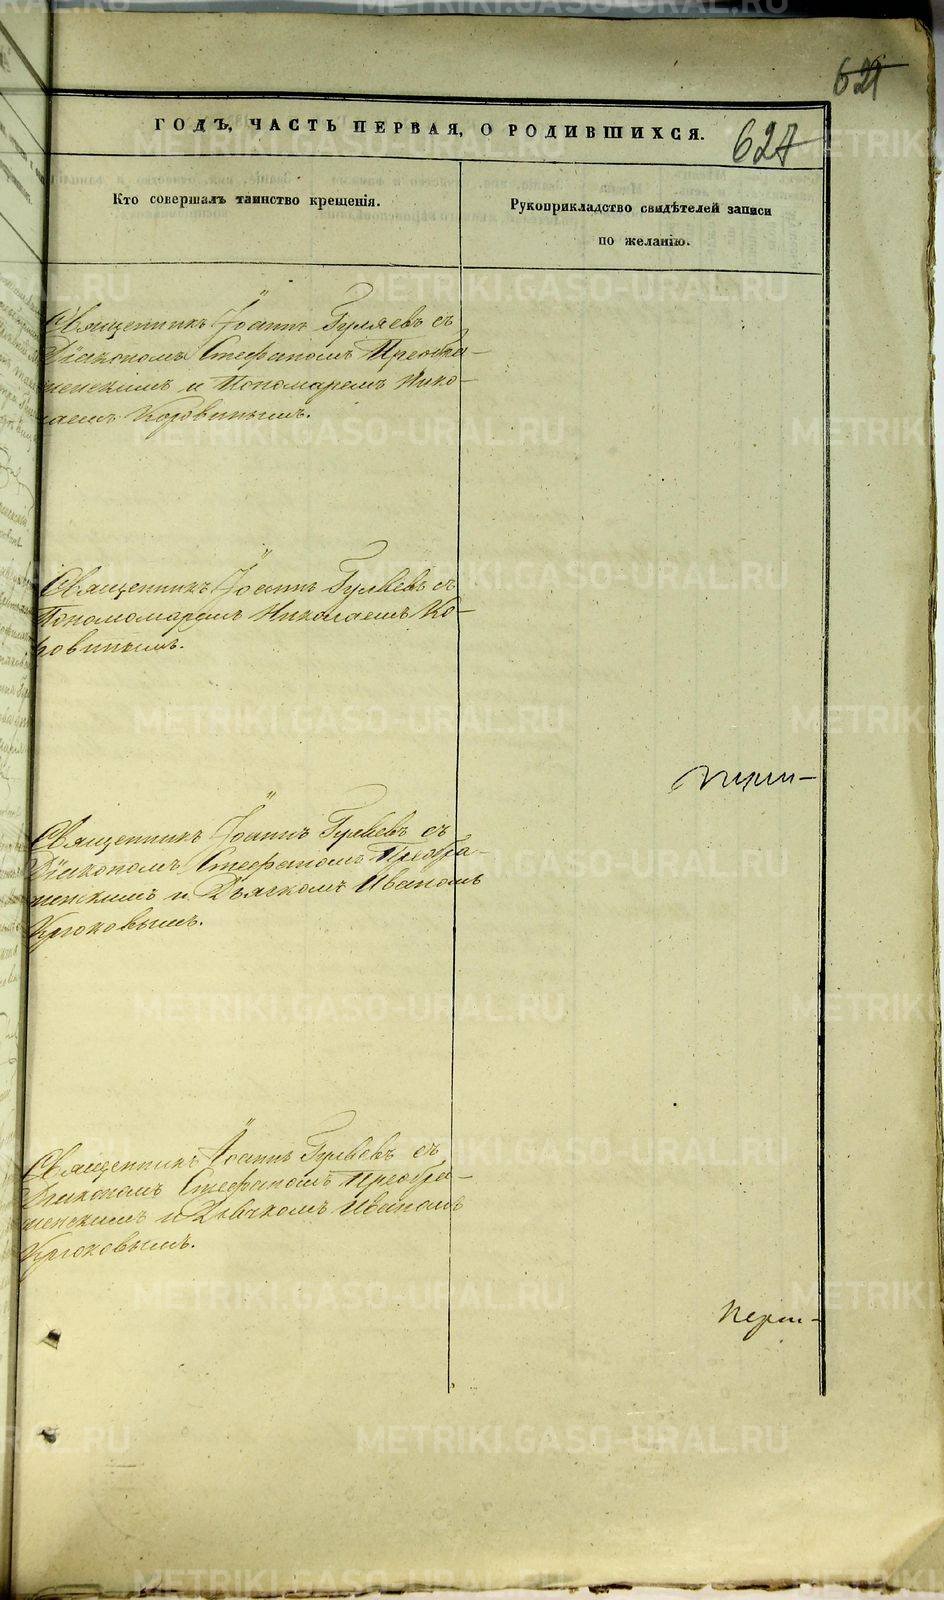 621
ГОДЪ, ЧАСТЬ ПЕРВАЯ, О РОДИВШИХСЯ.
627
Кто совершалъ таинство крещенія.
Рукоприкладство свидѣтелей записи
по желанію.
Священникъ Іоаннъ Гуляевъ съ
Діакономъ Стефаномъ Преобра-
женскимъ и Пономаремъ Нико-
лаемъ Коровинымъ.
Священникъ Іоаннъ Гуляевъ съ
Пономомаремъ Николаемъ Ко-
ровинымъ.
Священникъ Іоаннъ Гуляевъ съ
Діакономъ Стефаномъ Преобра-
женскимъ и Дьячкомъ Иваномъ
Крюковымъ.
Священникъ Іоаннъ Гуляевъ съ
Діакономъ Стефаномъ Преобра-
женскимъ и Дьячкомъ Иваномъ
Крюковымъ.
METRIKI.GASO-URAL.RU